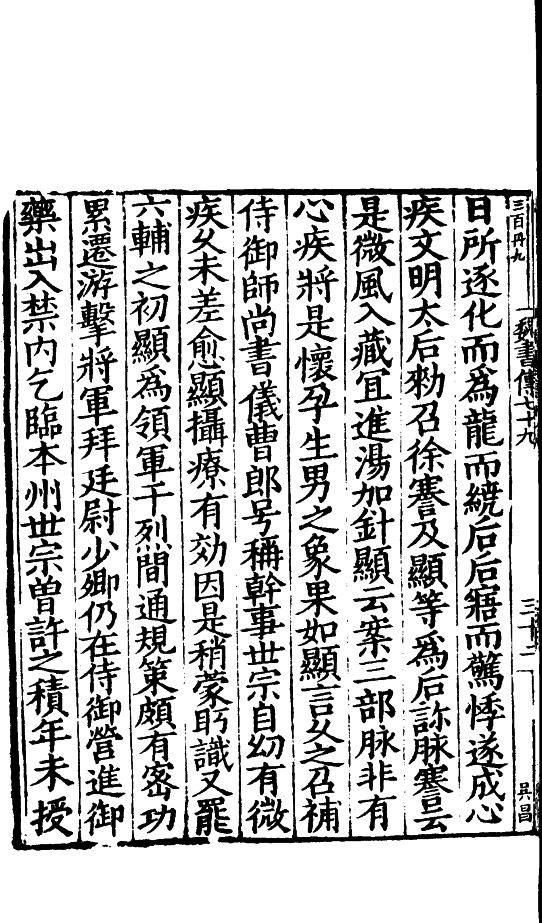 三百卅九
魏書傳七十九
三十二
吳昌
日所逐化而爲龍而繞后后寤而驚悸遂成心
疾文明太后勑召徐謇及顯等爲后診脉謇云
是微風入藏冝進湯加針顯云案三部脉非有
心疾將是懷孕生男之象果如顯言乆之召補
侍御師尚書儀曹郎号稱幹事世宗自㓜有微
疾乆未差愈顯攝療有効因是稍蒙眄識又罷
六輔之初顯爲領軍于烈間通規策頗有密功
累遷游擊將軍拜廷尉少卿仍在侍御營進御
藥出入禁内乞臨本州世宗曽許之積年未授